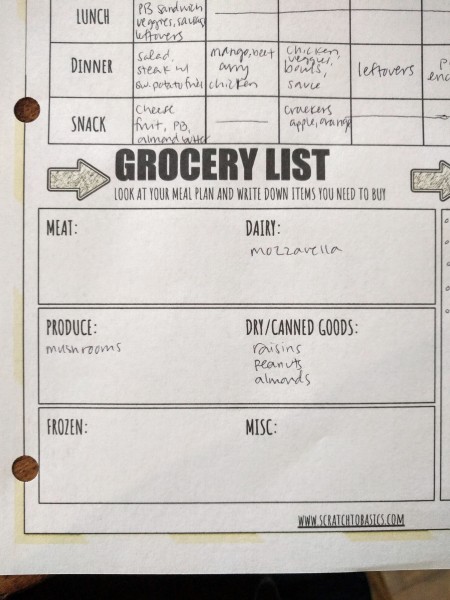 LUNCH
PB sandwich
veggies, sausage
leftovers
DINNER
salad,
steak w/
sw. potato fries
mango, beet
curry
chicken
chicken,
veggies,
bowls,
sauce
leftovers
SNACK
cheese
fruit, PB,
almond butter
crackers
apple, orange
GROCERY LIST
LOOK AT YOUR MEAL PLAN AND WRITE DOWN ITEMS YOU NEED TO BUY
MEAT:
DAIRY:
mozzarella
PRODUCE:
mushrooms
DRY/CANNED GOODS:
raisins
peanuts
almonds
FROZEN:
MISC:
WWW.SCRATCHTOBASICS.COM